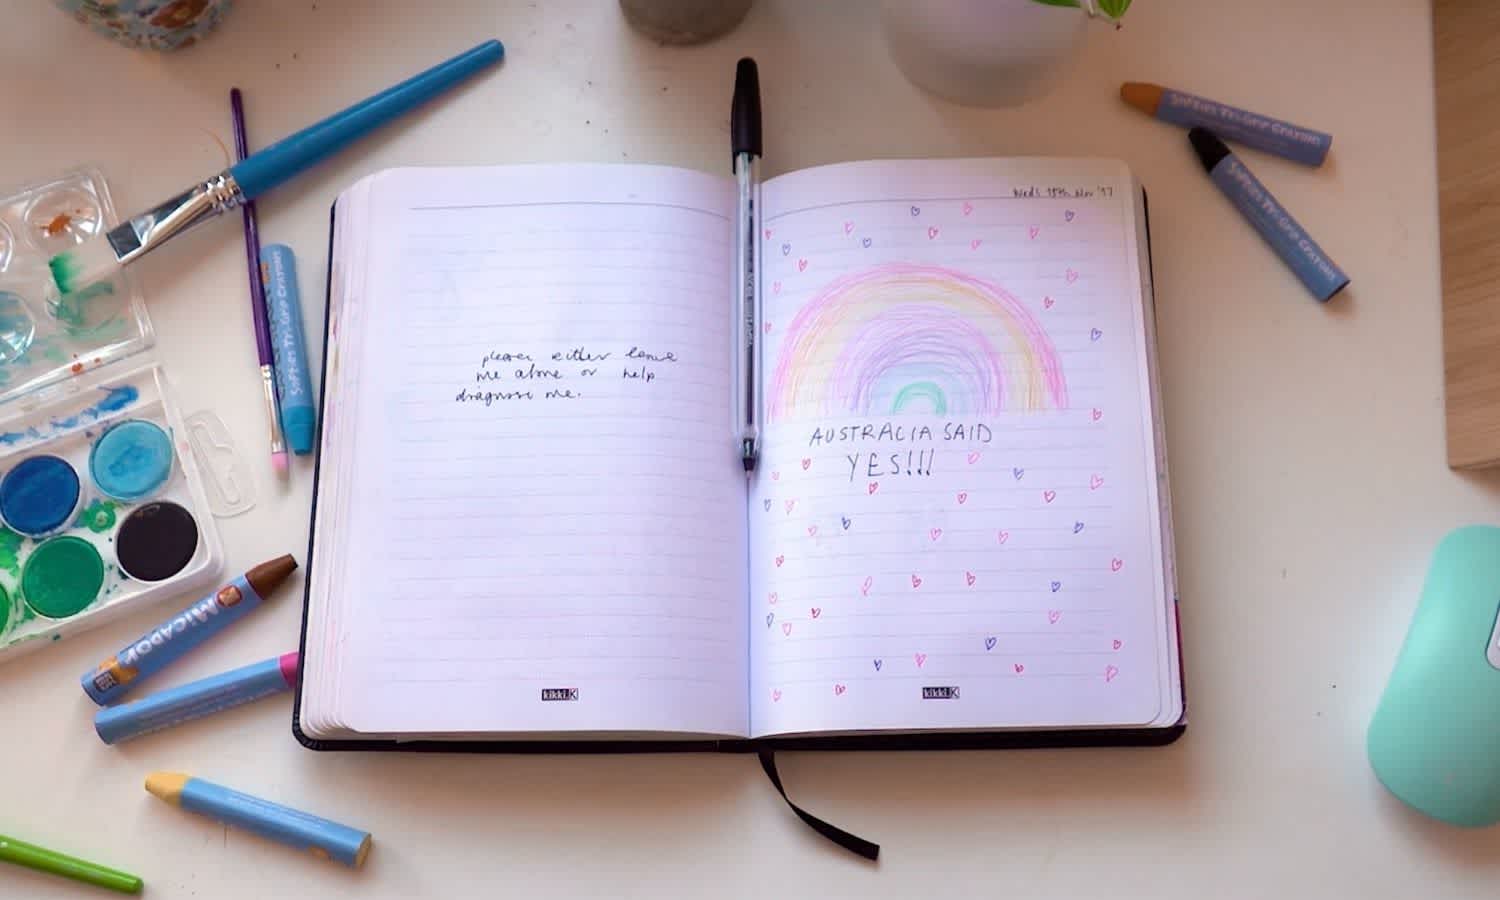 please either leave
me alone or help
diagnose me.
kikki.K
Weds 15th Nov '17
AUSTRALIA SAID
YES!!!
kikki.K
Softies Tri-Grip Crayons
Softies Tri-Grip Crayons
Softies Tri-Grip
MICADOR